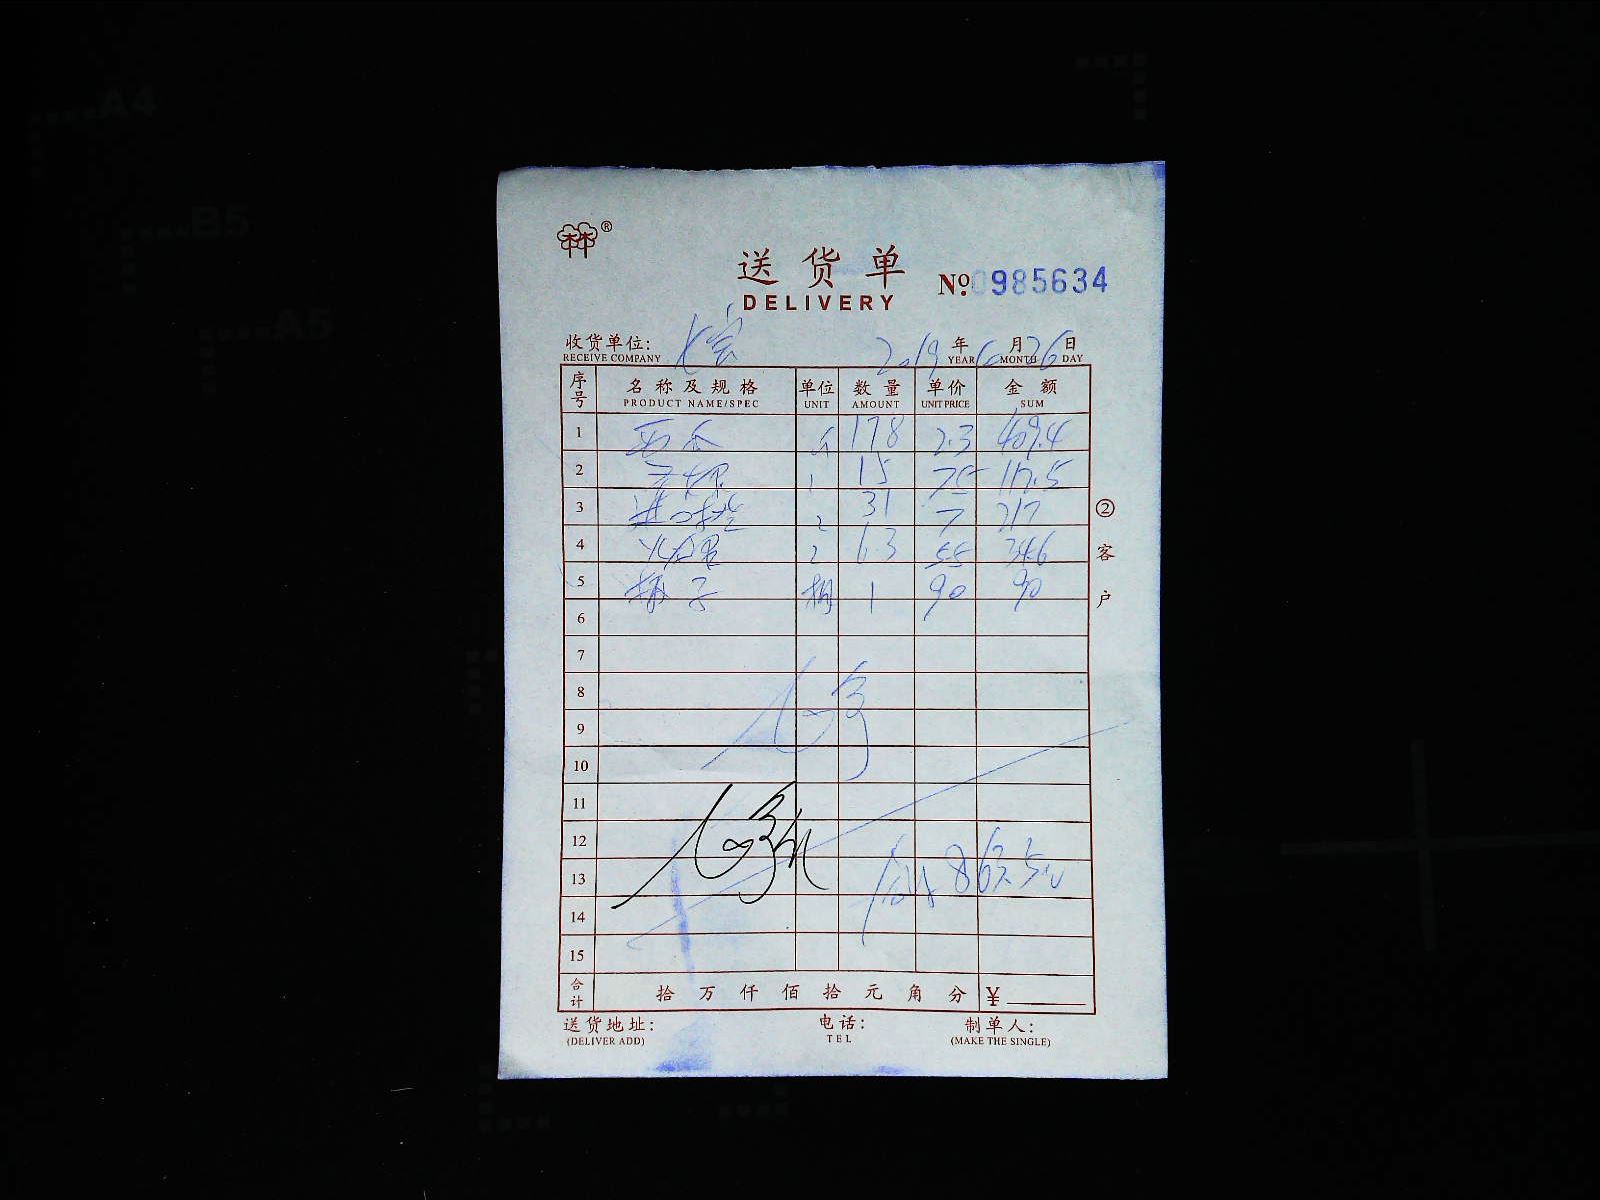 A4
B5
A5
林®
送货单
DELIVERY
№ 0985634
收货单位:
RECEIVE COMPANY
2019 年 月 26 日
YEAR MONTH DAY
序号 名称及规格 单位 数量 单价 金额
PRODUCT NAME/SPEC UNIT AMOUNT UNIT PRICE SUM
1 西瓜 斤 178 2.3 409.4
2 15 7.5 112.5
3 31 7 217
4 6.3 5.5 34.6
5 1 90 90
6
7
8
9
10
11
12
13 863.5元
14
15
合计 拾 万 仟 佰 拾 元 角 分 ¥
②客户
送货地址: 电话: 制单人:
(DELIVER ADD) TEL (MAKE THE SINGLE)